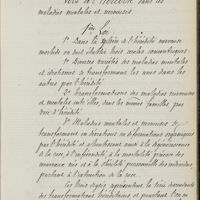 Lois de l'Hérédité dans les
maladies mentales et nerveuses.
1ère Loi
1° Dans la sphère de l'hérédité nerveuse
morbide on voit établir trois choses caractéristiques:
1° Diverses variétés des maladies mentales
et idiotisme se transformant les unes dans les
autres par l'hérédité.
2° Transformations des maladies nerveuses
et mentales entre elles, dans les mêmes familles par
voie d'hérédité.
3° Maladies mentales et nerveuses se
transformant en déviations ou déformations organiques
par l'hérédité et aboutissant ainsi à la dégénérescence
de la race, à l'infirmité, à la mortalité précoce des
nouveaux nés et à la stérilité personnelle des individus
partant à l'extinction de la race.
Ces trois degrés représentent, la 1ère
des transformations héréditaires et